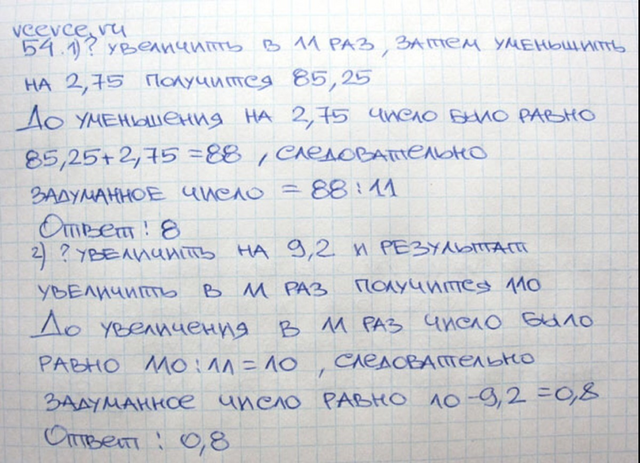 vcevce.ru
54.1)? увеличить в 11 раз, затем уменьшить
на 2,75 получится 85,25
До уменьшения на 2,75 число было равно
85,25+2,75=88, следовательно
задуманное число = 88:11
Ответ: 8
2) ? увеличить на 9,2 и результат
увеличить в 11 раз получится 110
До увеличения в 11 раз число было
равно 110:11=10, следовательно
задуманное число равно 10-9,2=0,8
Ответ: 0,8